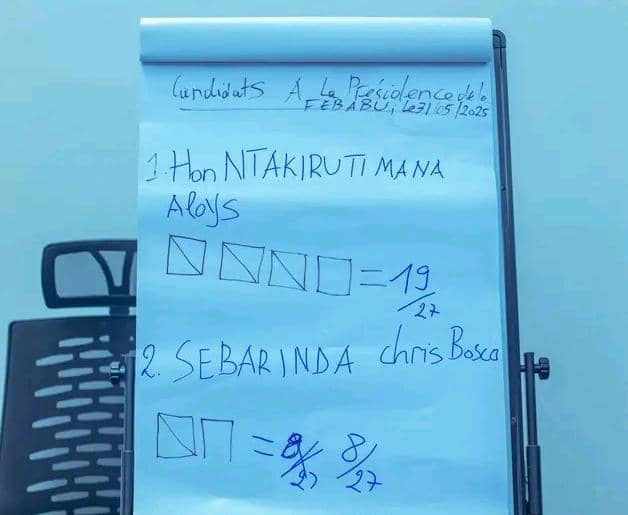 Candidats A La Présidence de la
FEBABU, Le 31/05/2025
1. Hon NTAKIRUTIMANA
Aloys
= 19/27
2. SEBARINDA chris Bosco
= 8/27 8/27